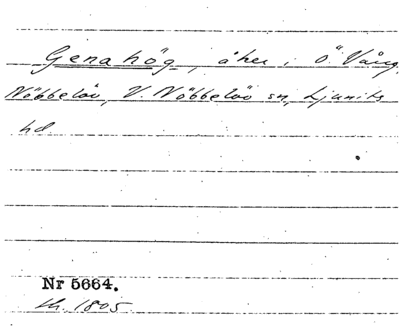 Genahög, åker i Ö. Vång,
Nöbbelöv, V. Nöbbelöv sn, Ljunits
hd
Nr 5664.
th. 1805